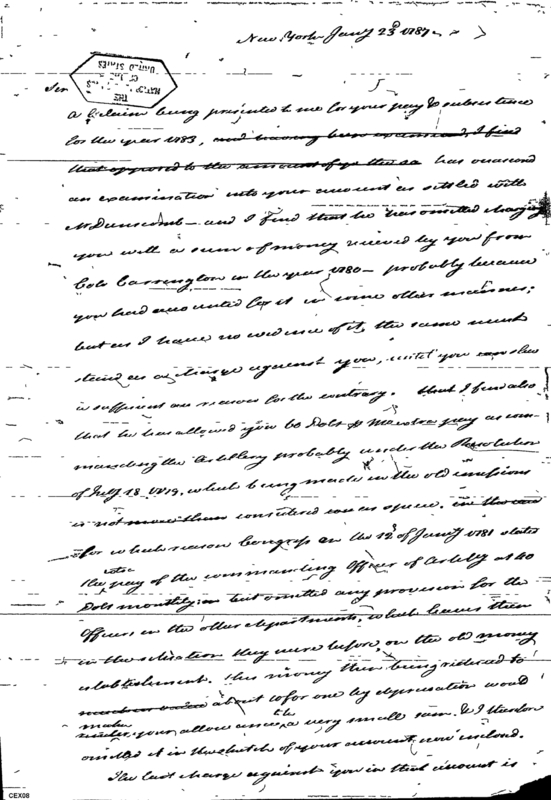 New York Jany 23d 1787
THE
NATIONAL ARCHIVES
OF THE
UNITED STATES
Sir
A Claim being presented to me for your pay & subsistence
for the year 1783, and having been examined, I find
that opposed to the amount of has occasiond
an examination into your account as settled with
Mr Dunscomb - and I find that he has omitted charging
you with a sum of money recieved by you from
Colo Carrington in the year 1780 - probably because
you had accounted for it in some other manner;
but as I have no evidence of it, the same must
stand as a charge against you, until you can shew
a sufficient reason for the contrary. I find also
that he has allowed you 60 Dols pr Month pay as com-
manding the Artillery probably under the Resolution
of July 1779, which being made in the old emissions
is not more than considered as specie. in the
for which reason Congress on the 12th of Jany 1781 states
the pay of the commanding Officer of Artilly at 40
Dols monthly but omitted any provision for the
Officers in the other departments, which leaves them
in the situation they were before, on the old money
establishment. This money then being reduced to
about for one by depreciation would
make your allowance a very small sum. & I therefore
omitted it in the sketch of your account now inclosd.
The last charge against you in that account is
CEX08